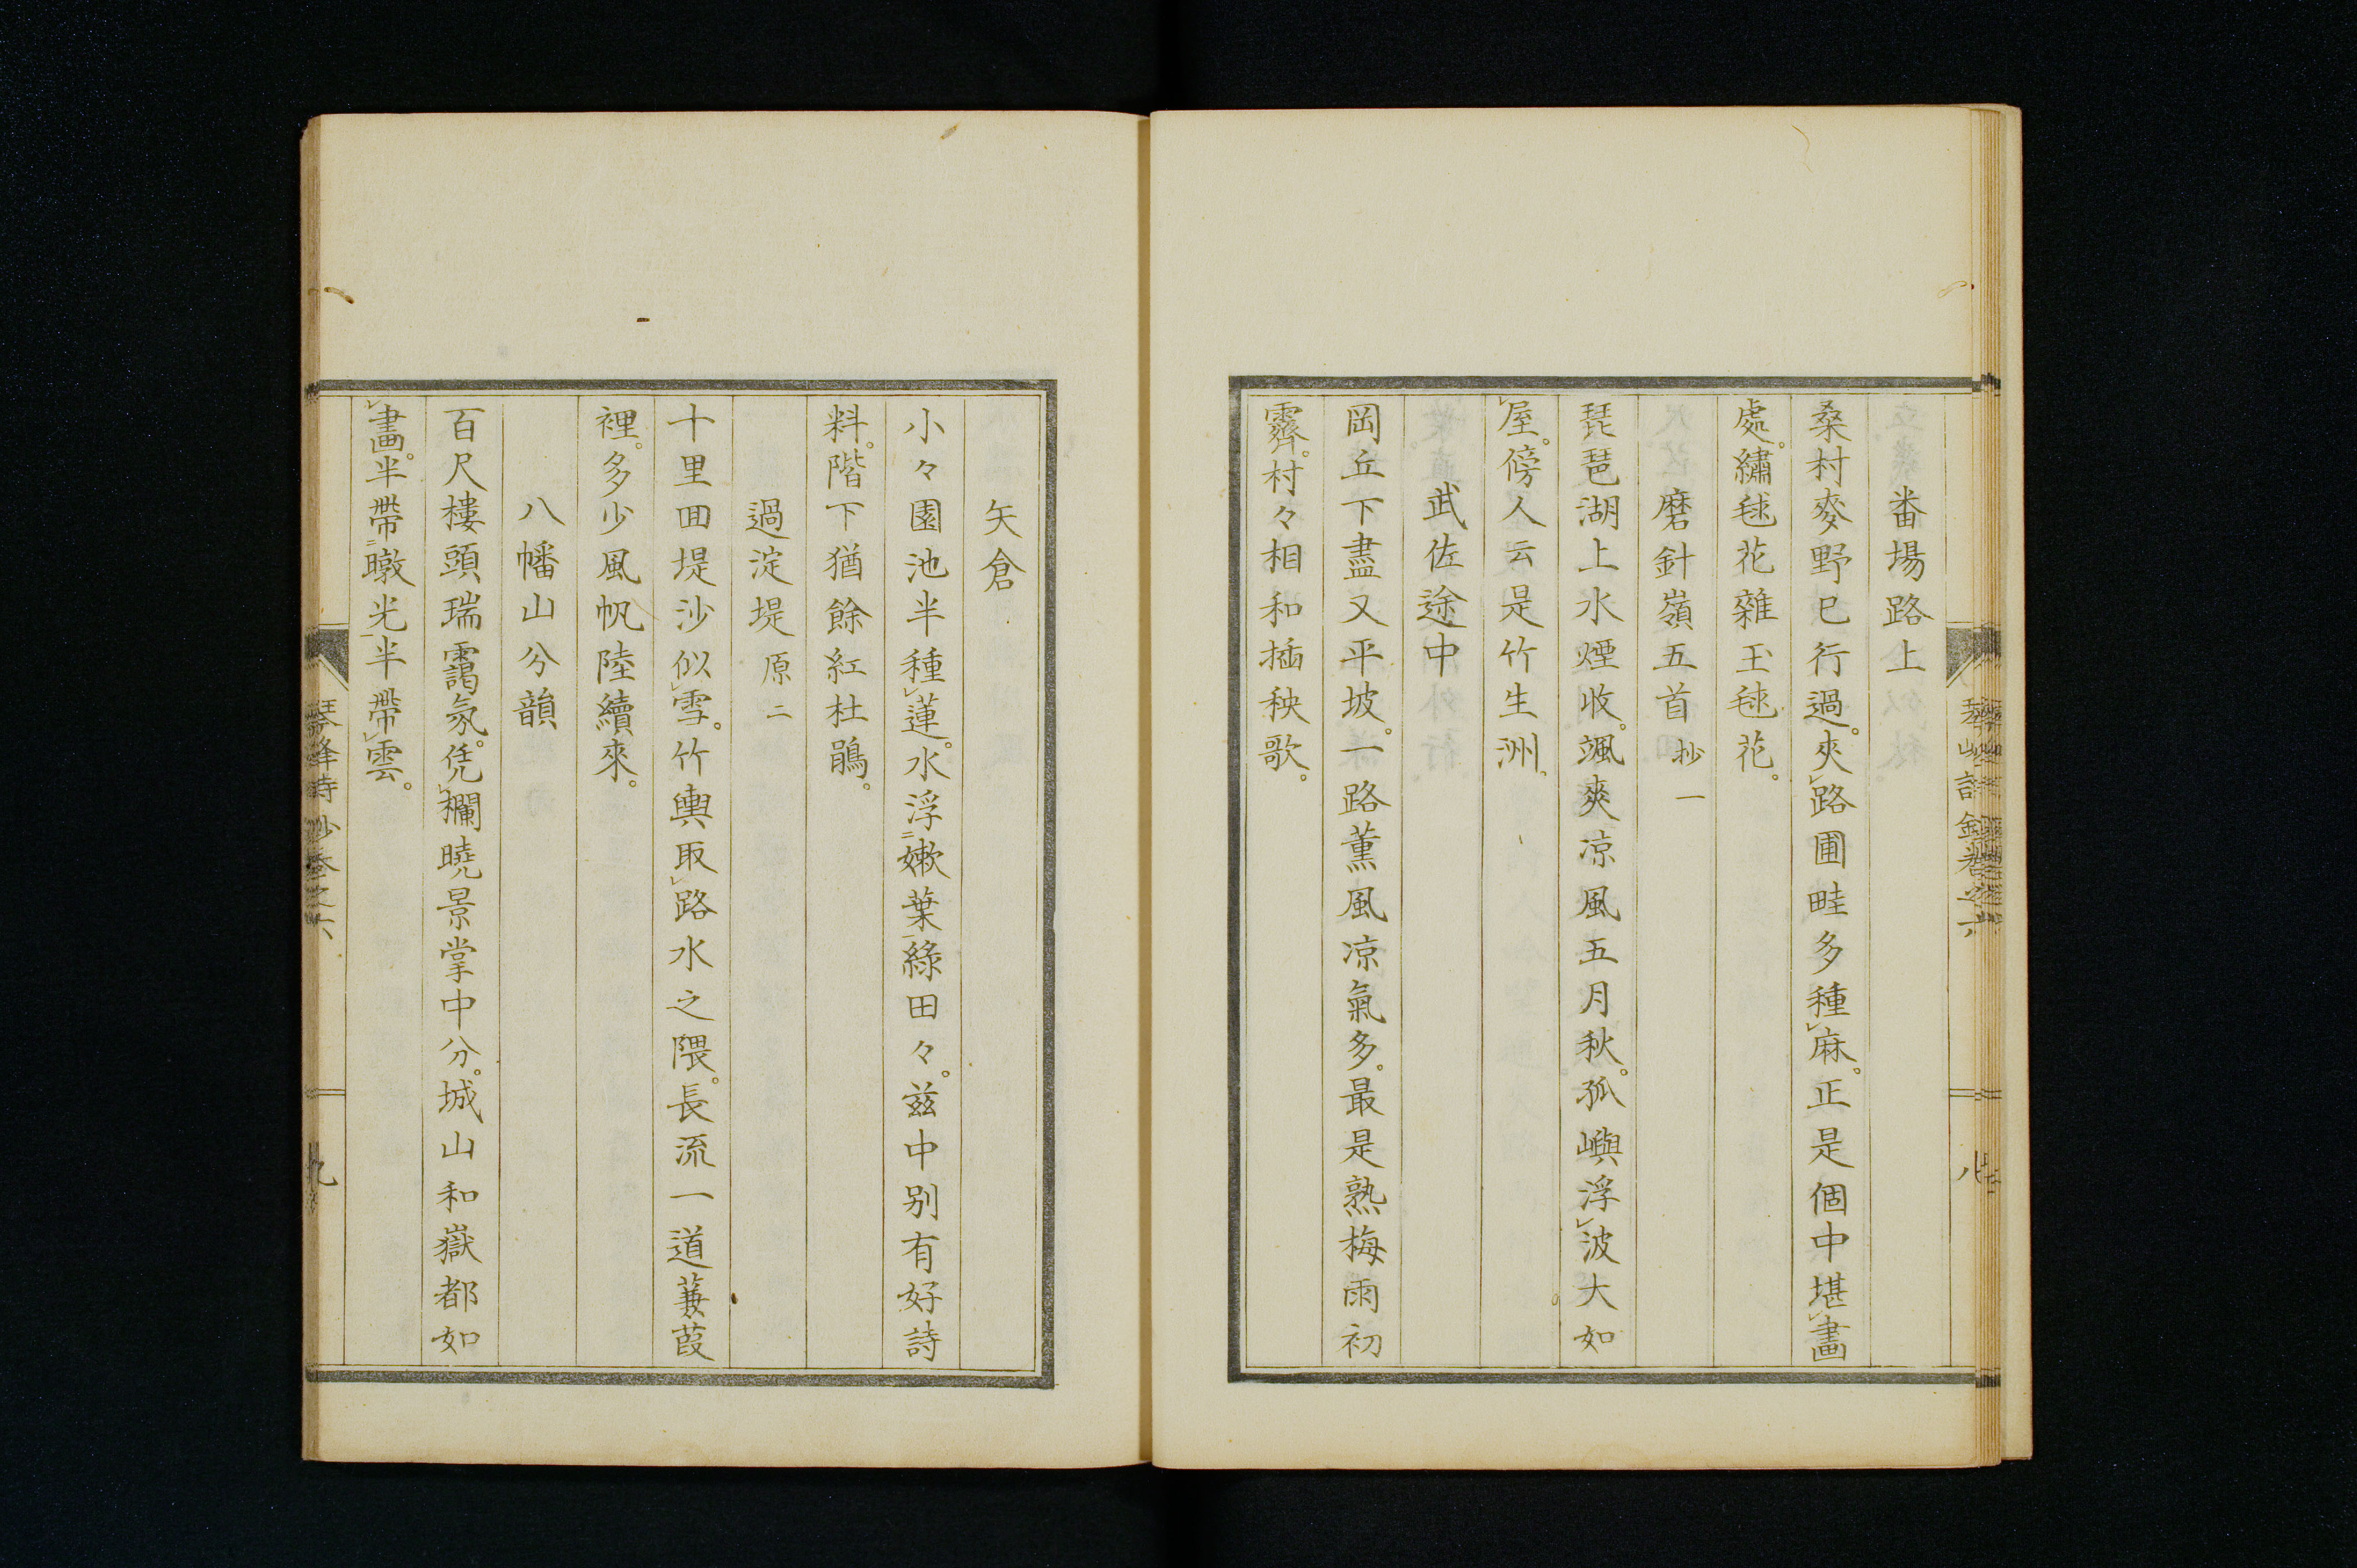 番場路上
桑村麥野已行過。夾路圃畦多種麻。正是個中堪畫
處。繡毬花雜玉毬花。
磨針嶺五首 抄一
琵琶湖上水煙收。颯爽凉風五月秋。孤嶼浮波大如
屋。傍人云是竹生洲。
武佐途中
岡丘下盡又平坡。一路薫風凉氣多。最是熟梅雨初
霽。村々相和插秧歌。
八
矢倉
小々園池半種蓮。水浮嫩葉綠田々。茲中別有好詩
料。階下猶餘紅杜鵑。
過淀堤 原二
十里田堤沙似雪。竹輿取路水之隈。長流一道蒹葭
裡。多少風帆陸續來。
八幡山分韻
百尺樓頭瑞靄氛。凭欄曉景掌中分。城山和嶽都如
畫。半帶暾光半帶雲。
琴峰詩抄卷之六
九